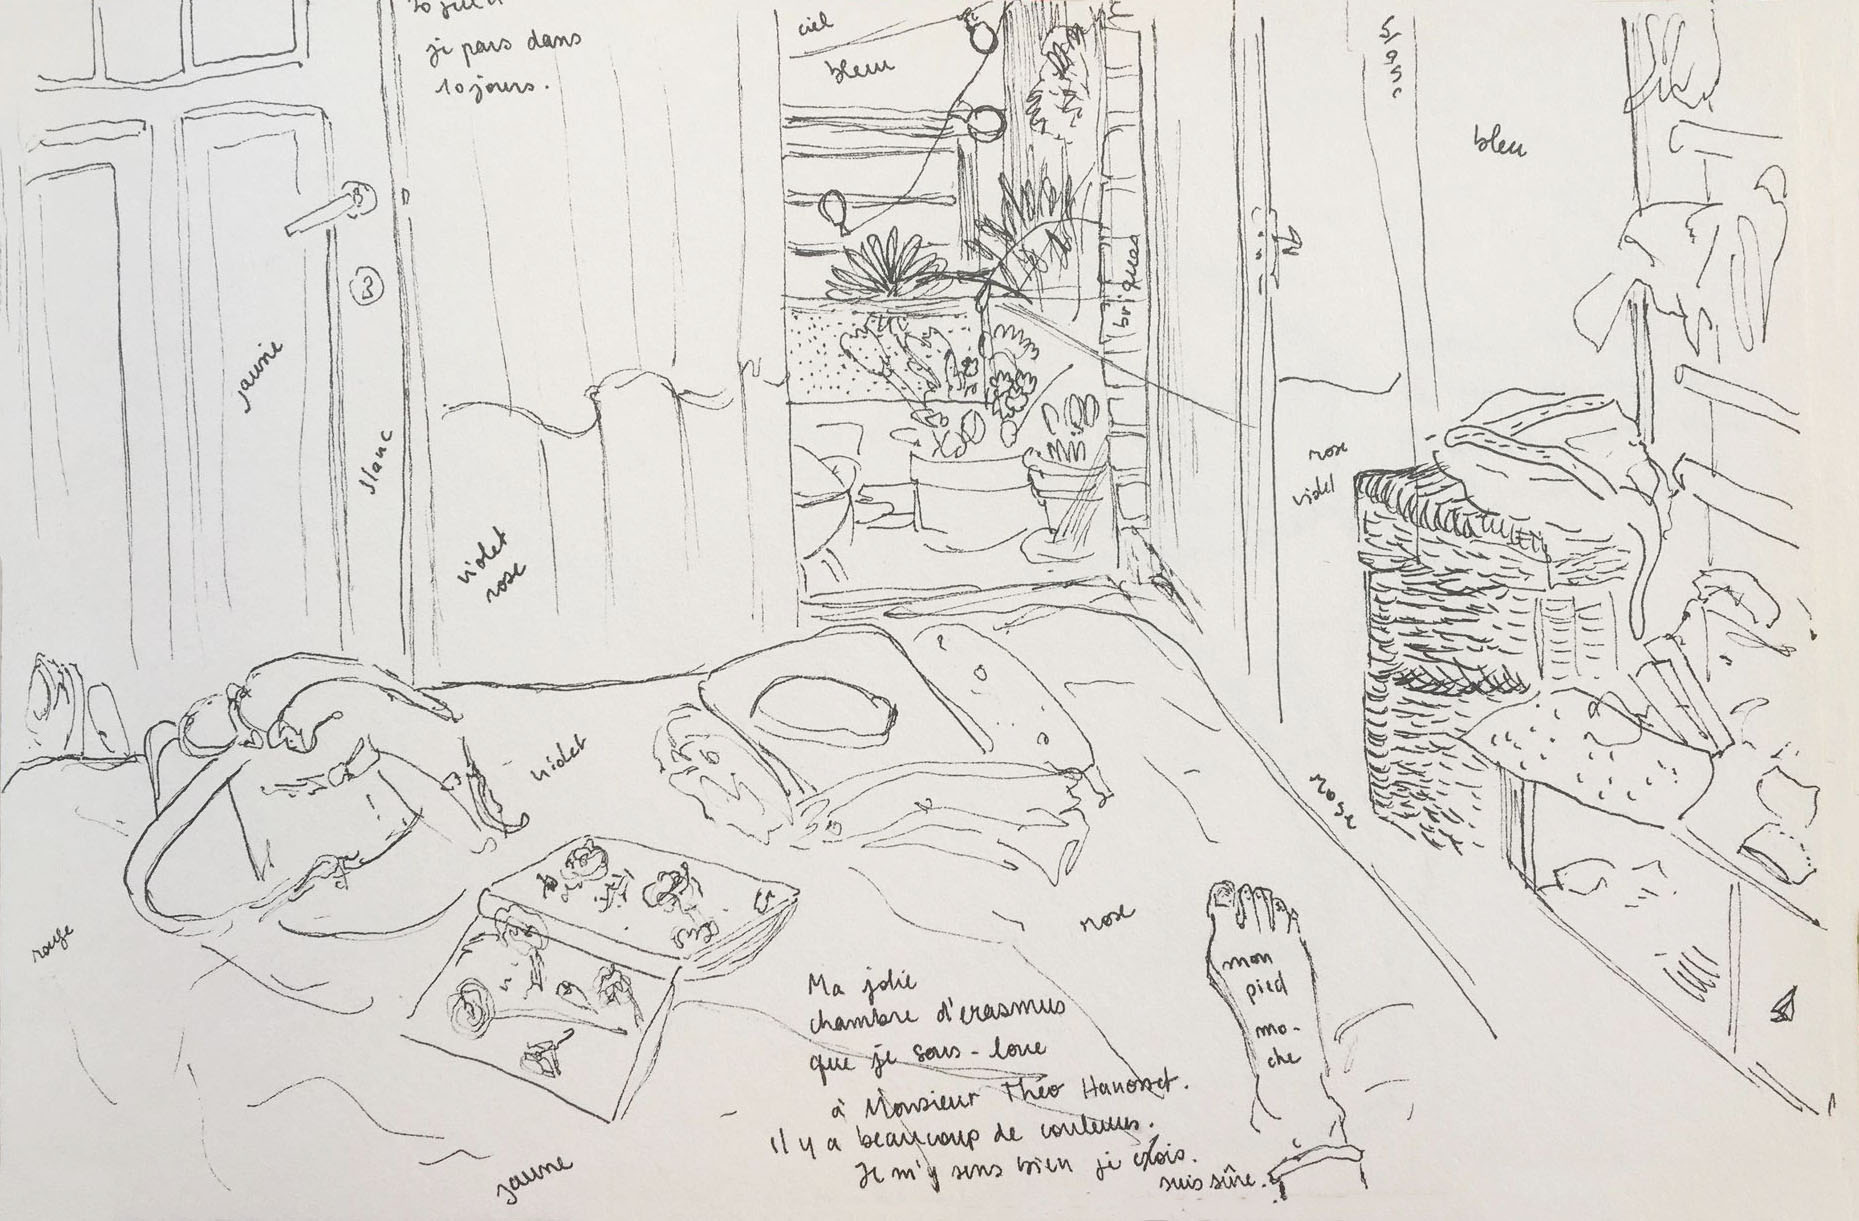 je pars dans
10 jours.
ciel
bleu
bleu
briques
jaune
blanc
rose
violet
violet
rose
violet
rose
rouge
rose
mon
pied
mo-
che
Ma jolie
chambre d'erasmus
que je sous-loue
à Monsieur Théo Hanosset.
Il y a beaucoup de couleurs.
Je m'y sens bien je crois.
suis sûre.
jaune